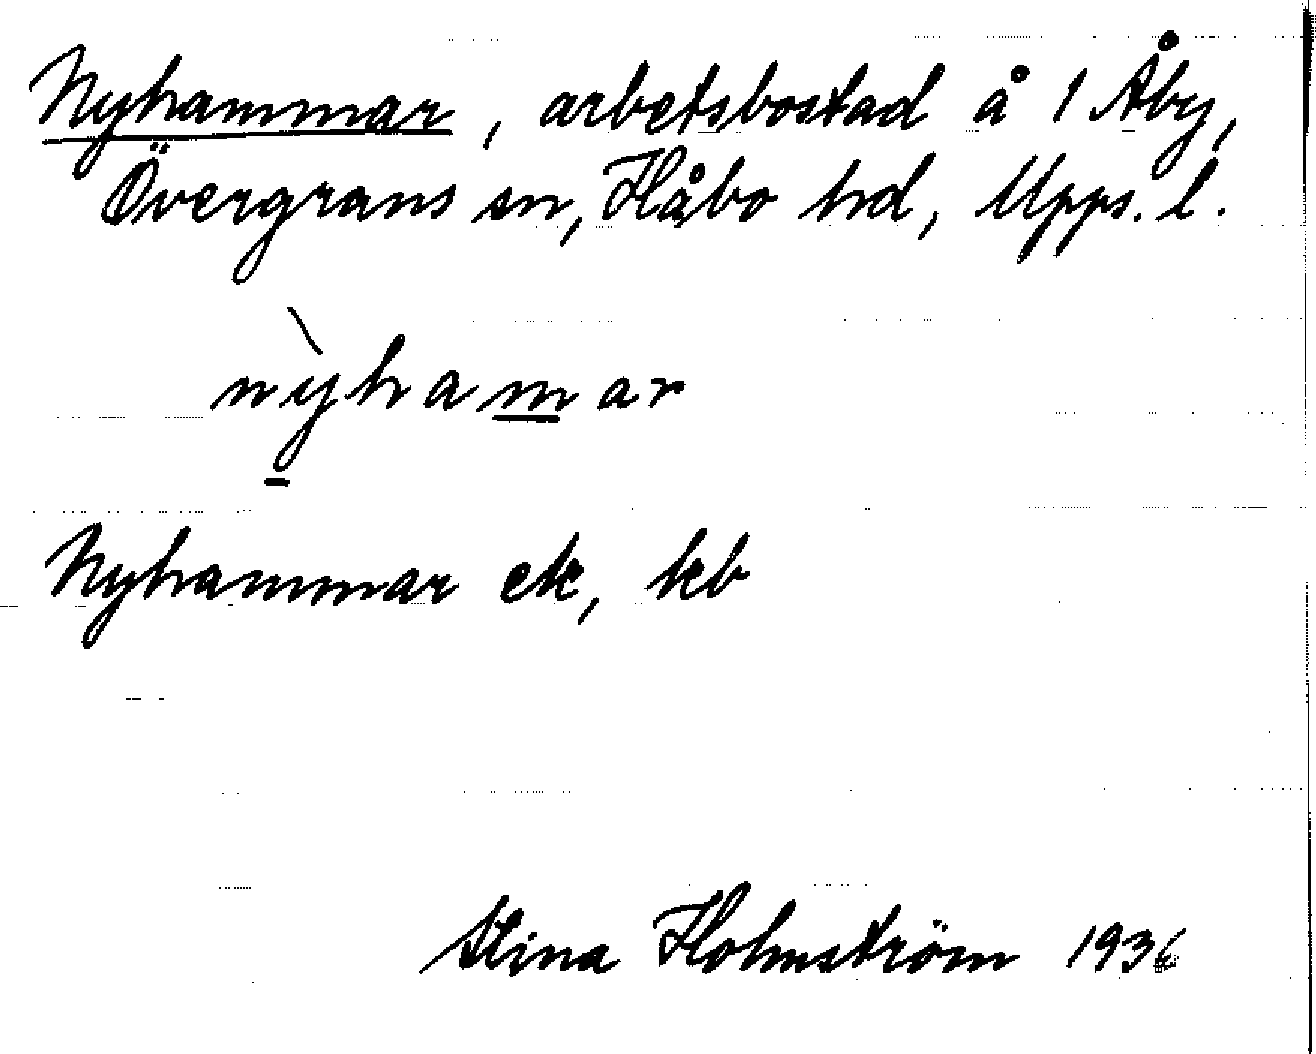 Nyhammar, arbetsbostad å 1 Åby,
Övergrans sn, Håbo hd, Upps. l.
nỳhamar
Nyhammar ek, kb
Stina Holmström 1936